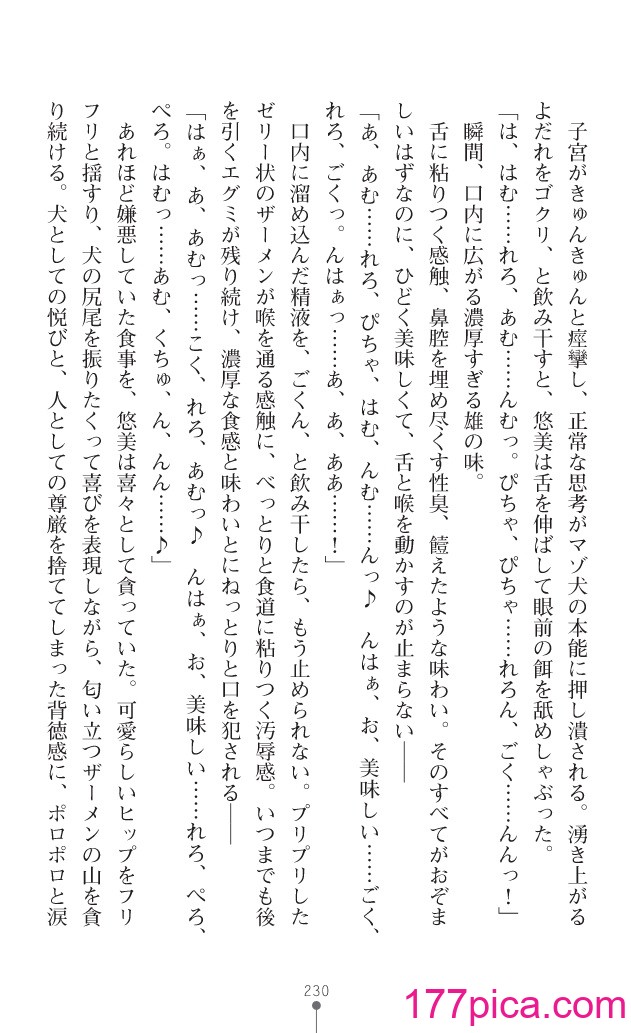 子宮がきゅんきゅんと痙攣し、正常な思考がマゾ犬の本能に押し潰される。湧き上がる
よだれをゴクリ、と飲み干すと、悠美は舌を伸ばして眼前の餌を舐めしゃぶった。
「は、はむ……れろ、あむ……んむっ。ぴちゃ、ぴちゃ……れろん、ごく……んんっ！」
瞬間、口内に広がる濃厚すぎる雄の味。
舌に粘りつく感触、鼻腔を埋め尽くす性臭、饐えたような味わい。そのすべてがおぞま
しいはずなのに、ひどく美味しくて、舌と喉を動かすのが止まらない――
「あ、あむ……れろ、ぴちゃ、はむ、んむ……んっ♪　んはぁ、お、美味しい……ごく、
れろ、ごくっ。んはぁっ……あ、あ、ああ……！」
口内に溜め込んだ精液を、ごくん、と飲み干したら、もう止められない。プリプリした
ゼリー状のザーメンが喉を通る感触に、べっとりと食道に粘りつく汚辱感。いつまでも後
を引くエグミが残り続け、濃厚な食感と味わいとにねっとりと口を犯される――
「はぁ、あ、あむっ……こく、れろ、あむっ♪　んはぁ、お、美味しい……れろ、ぺろ、
ぺろ。はむっ……あむ、くちゅ、ん、んん……♪」
あれほど嫌悪していた食事を、悠美は喜々として貪っていた。可愛らしいヒップをフリ
フリと揺すり、犬の尻尾を振りたくって喜びを表現しながら、匂い立つザーメンの山を貪
り続ける。犬としての悦びと、人としての尊厳を捨ててしまった背徳感に、ポロポロと涙
230
177pica.com